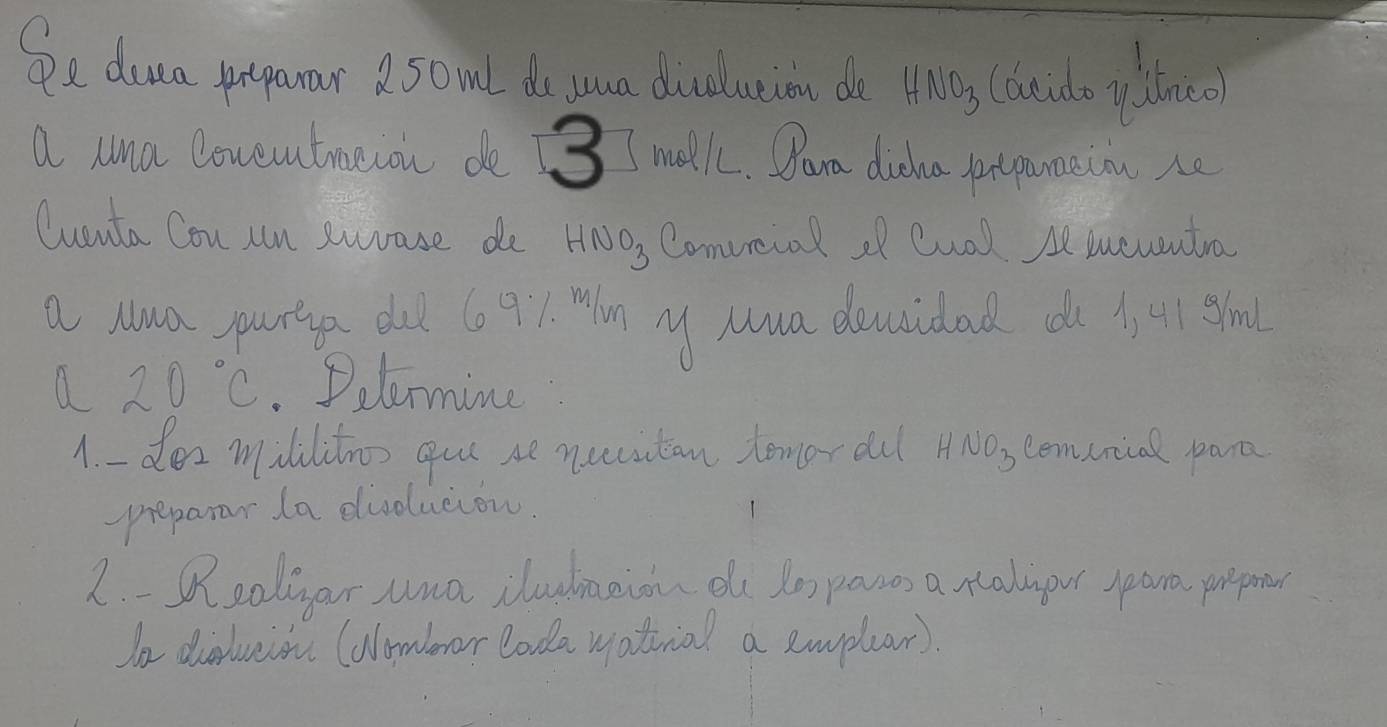 Se desea preparar 250 mL de una disolución de HNO₃ (ácido nítrico)
a una concentración de [3] mol/L. Para dicha preparación se
Cuenta con un envase de HNO₃ Comercial el Cual se encuentra
a una pureza del 69% m/m y una densidad de 1,41 g/mL
a 20 °C. Determine:
1.- Los mililitros que se necesitan tomar del HNO₃ comercial para
preparar la disolución.
2.- Realizar una ilustración de los pasos a realizar para preparar
la disolución (Nombrar Cada material a emplear).